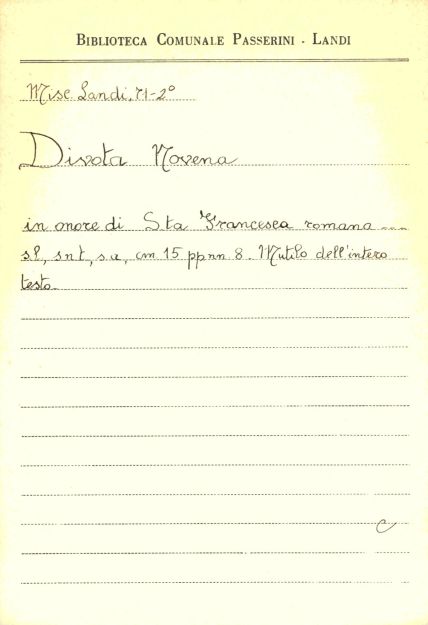 BIBLIOTECA COMUNALE PASSERINI - LANDI
Misc. Landi, 71-2°
Divota Novena
in onore di S.ta Francesca romana ....
s.l, snt, s.a, cm 15 ppnn 8. Mutilo dell'intero
testo.
C